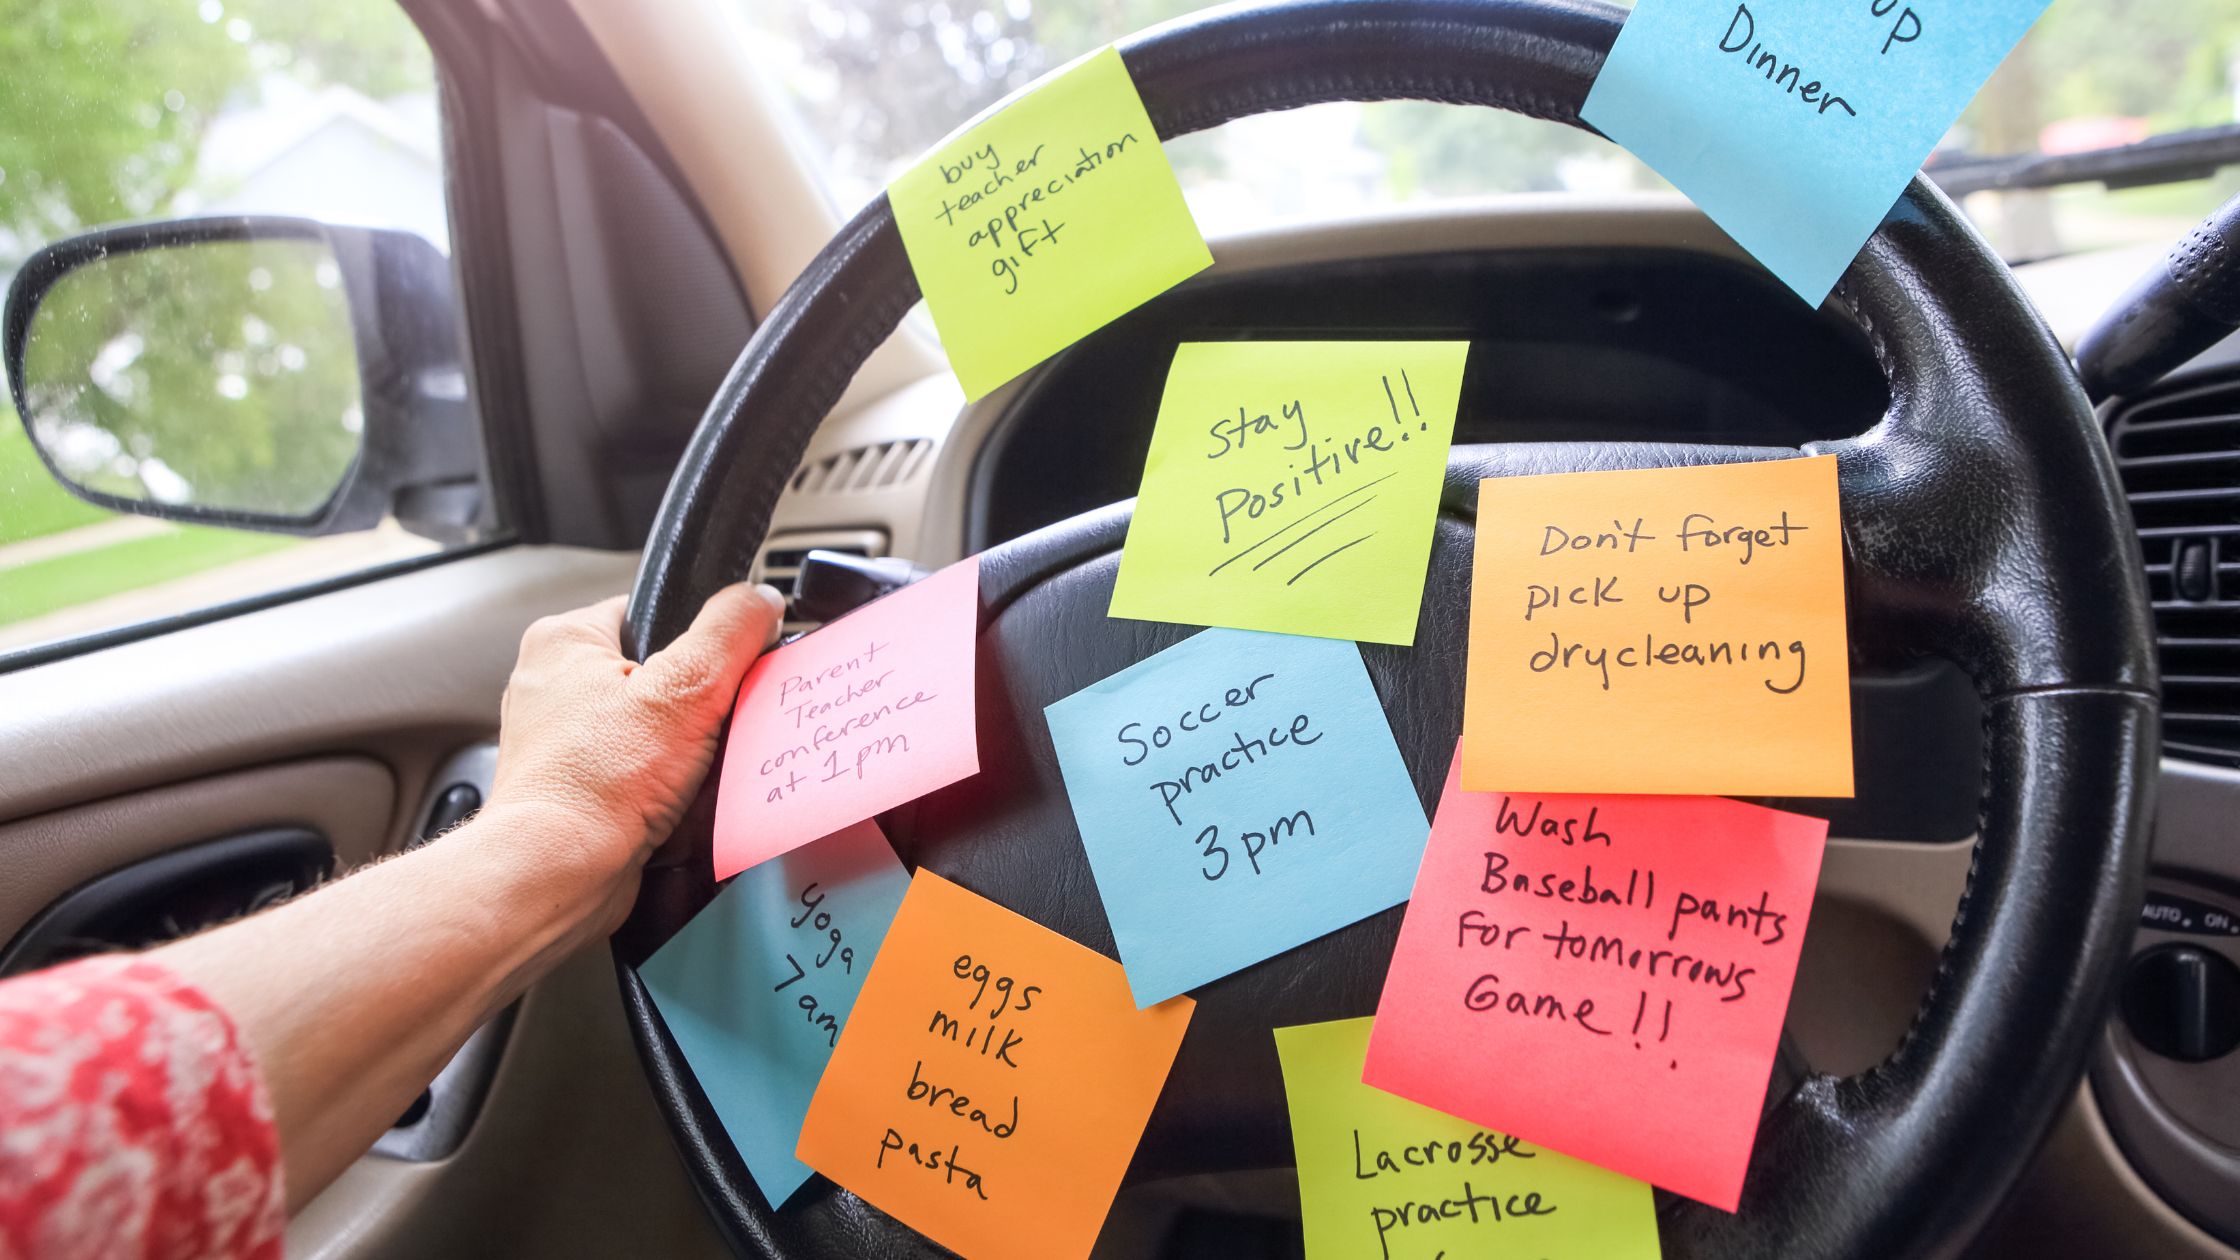 up
Dinner
buy
teacher
appreciation
gift
Stay
Positive!!
Don't forget
pick up
drycleaning
Parent
Teacher
conference
at 1pm
Soccer
practice
3pm
Wash
Baseball pants
for tomorrows
Game!!
yoga
7am
eggs
milk
bread
pasta
Lacrosse
practice
AUTO. ON.